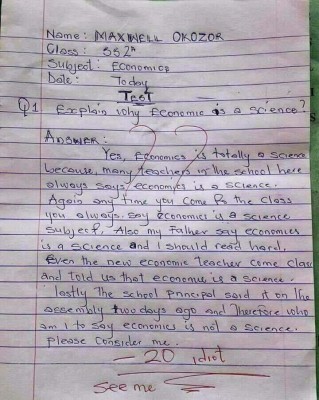 Name: MAXWELL OKOZOR
Class: SS2A
Subject: Economics
Date: Today
TEST
Q1 Explain why Economic is a science?
ANSWER:
Yes, Economics is totally a science
because, many teachers in the school here
always says economics is a science.
Again any time you come to the class
you always say economics is a science
subject, Also my Father say economics
is a science and I should read hard.
Even the new economic teacher come class
and told us that economic is a science.
lastly The school principal said it on the
assembly two days ago and Therefore who
am I to say economics is not a science.
please consider me.
- 20 idiot
see me